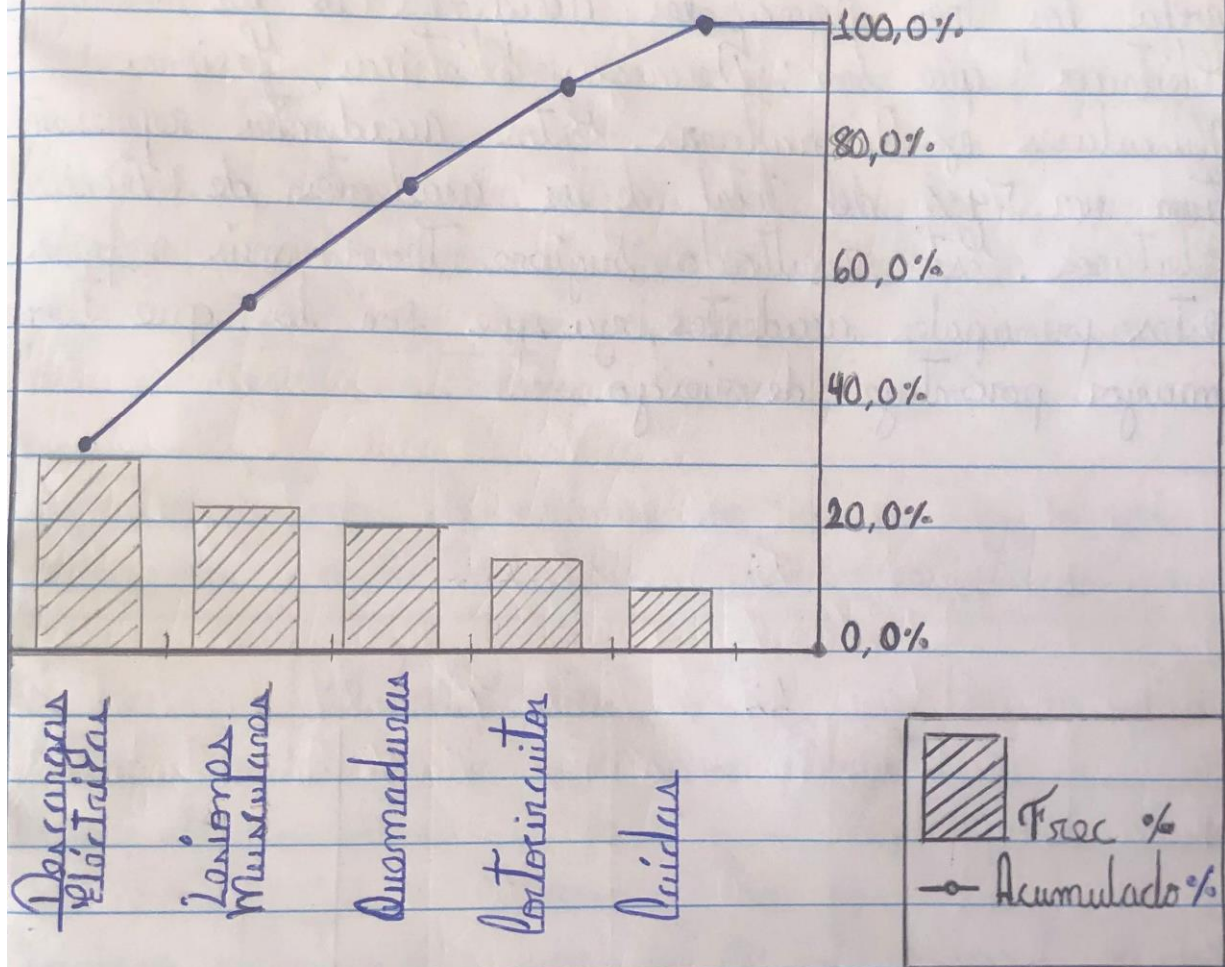 100,0%
80,0%
60,0%
40,0%
20,0%
0,0%
Descargas
Eléctricas
Lesiones
Musculares
Quemaduras
Cortocircuitos
Caídas
Frec %
Acumulado %